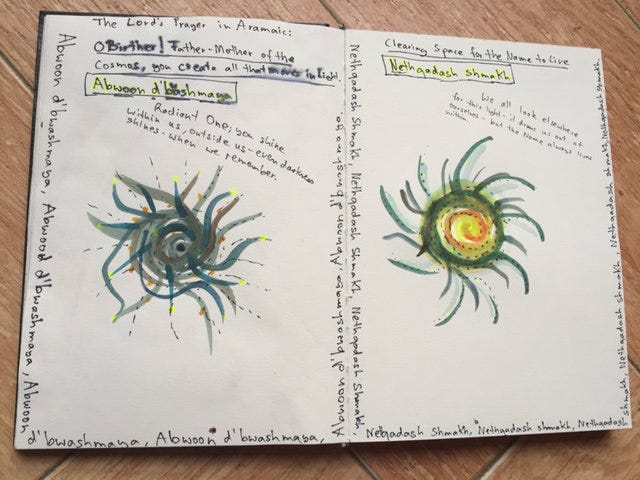 The Lord's Prayer in Aramaic:
O Birther! Father-Mother of the
Cosmos, you create all that moves in light.
Abwoon d'bwashmaya
Radiant One; you shine
within us, outside us - even darkness
shines - when we remember.
Abwoon d'bwashmaya, Abwood d'bwashmaya, Abwoon
d'bwashmaya, Abwoon d'bwashmaya,
Abwoon d'bwashmaya, Abwoon d'bwashmaya
Clearing Space for the Name to Live
Nethqadash shmakh
We all look elsewhere
for this light - it draws us out of
ourselves - but the Name always lives
within.
Nethqadash Shmakh, Nethqadash Shmakh, Nethqadash Shmakh, Nethqadash Shmakh,
Nethqadash Shmakh, Nethqadash shmakh, Nethqadash
shmakh, Nethqadash shmakh, Nethqadash shmakh, Nethqadash shmakh,